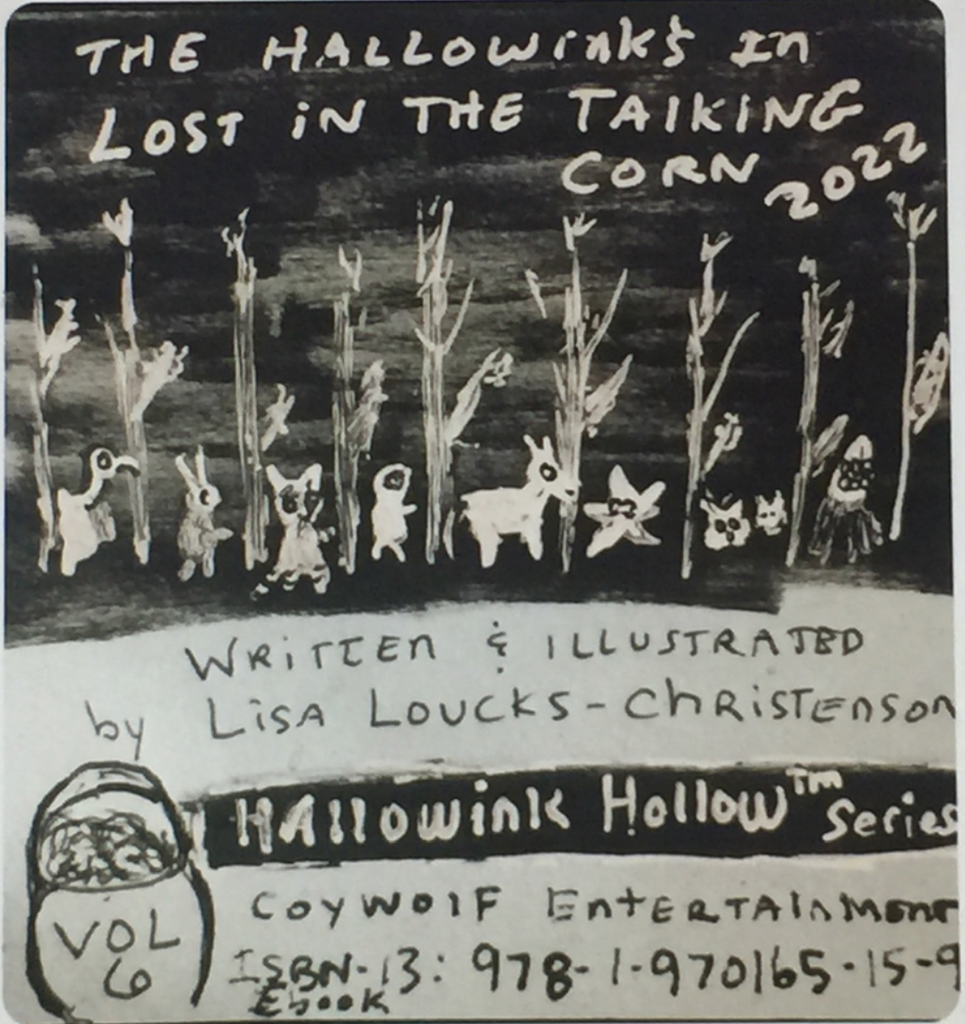 THE HALLOWink's In
LOST iN THE TALKING
CORN 2022
WRiTTEn & ILLUSTRATED
by LiSA LOUCKS-ChRiSTEnSON
HAllowink Hollow™ Series
COYWOLF EnTERTAInMEnT
VOL
6
ISBN-13: 978-1-970165-15-9
Ebook